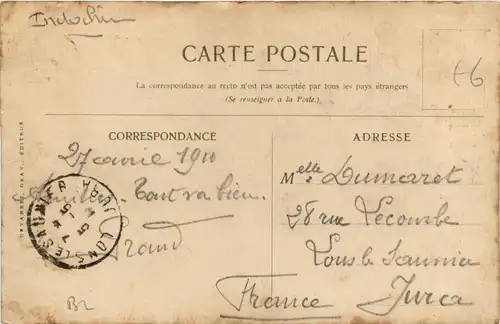 Indochine
CARTE POSTALE
La correspondance au recto n'est pas acceptée par tous les pays étrangers
(Se renseigner à la Poste.)
66
CORRESPONDANCE
27 avril 1910
Tout va bien.
ADRESSE
Melle Dumaret
28 rue Lecourbe
Lons le Saunier
France Jura
LONS-LE-SAUNIER JURA
DEVAMBEZ, GRAV., EDITEUR